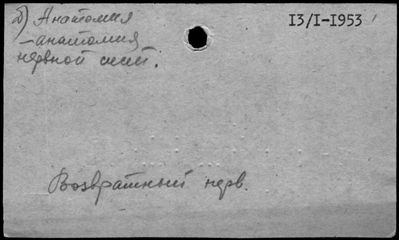 д) Анатомия
13/I-1953
– анатомия
нервной сист.
Возвратный нерв.